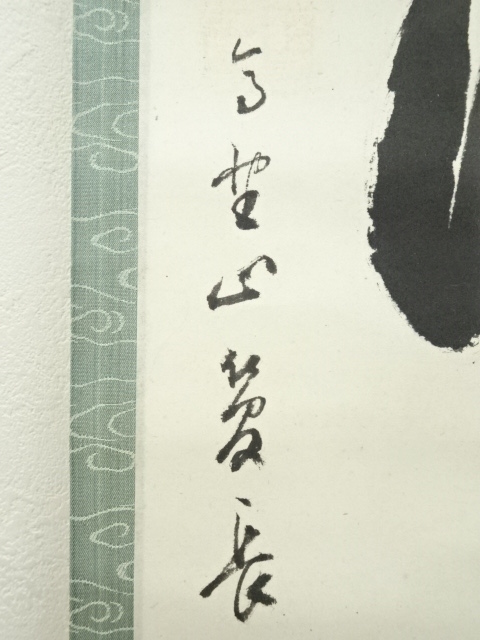 高野山管長